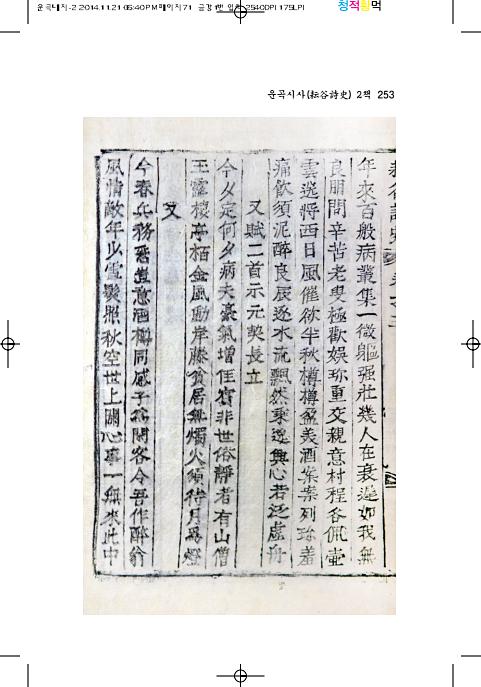 운곡내지-2 2014.11.21 05:40 PM 페이지71
2540DPI 175LPI
청적황먹
운곡시사(耘谷詩史) 2책 253
年來百般病叢集一微軀强壯幾人在衰遲如我無
良朋問辛苦老叟極歡娛珍重交親意村程各佩壺
雲遮將西日風催欲半秋樽樽盈美酒案案列珍羞
痛飮須泥醉良辰逐水流飄然乘逸興心若泛虛舟
又賦二首示元契長立
今夕定何夕病夫豪氣增佳賓非世俗靜者有山僧
玉露棲亭栢金風動岸藤貧居無燭火須待月爲燈
又
今春兵務
意酒
同感子
問客今吾作醉翁
風情敵年少雪鬢照秋空世上關心事一無來此中